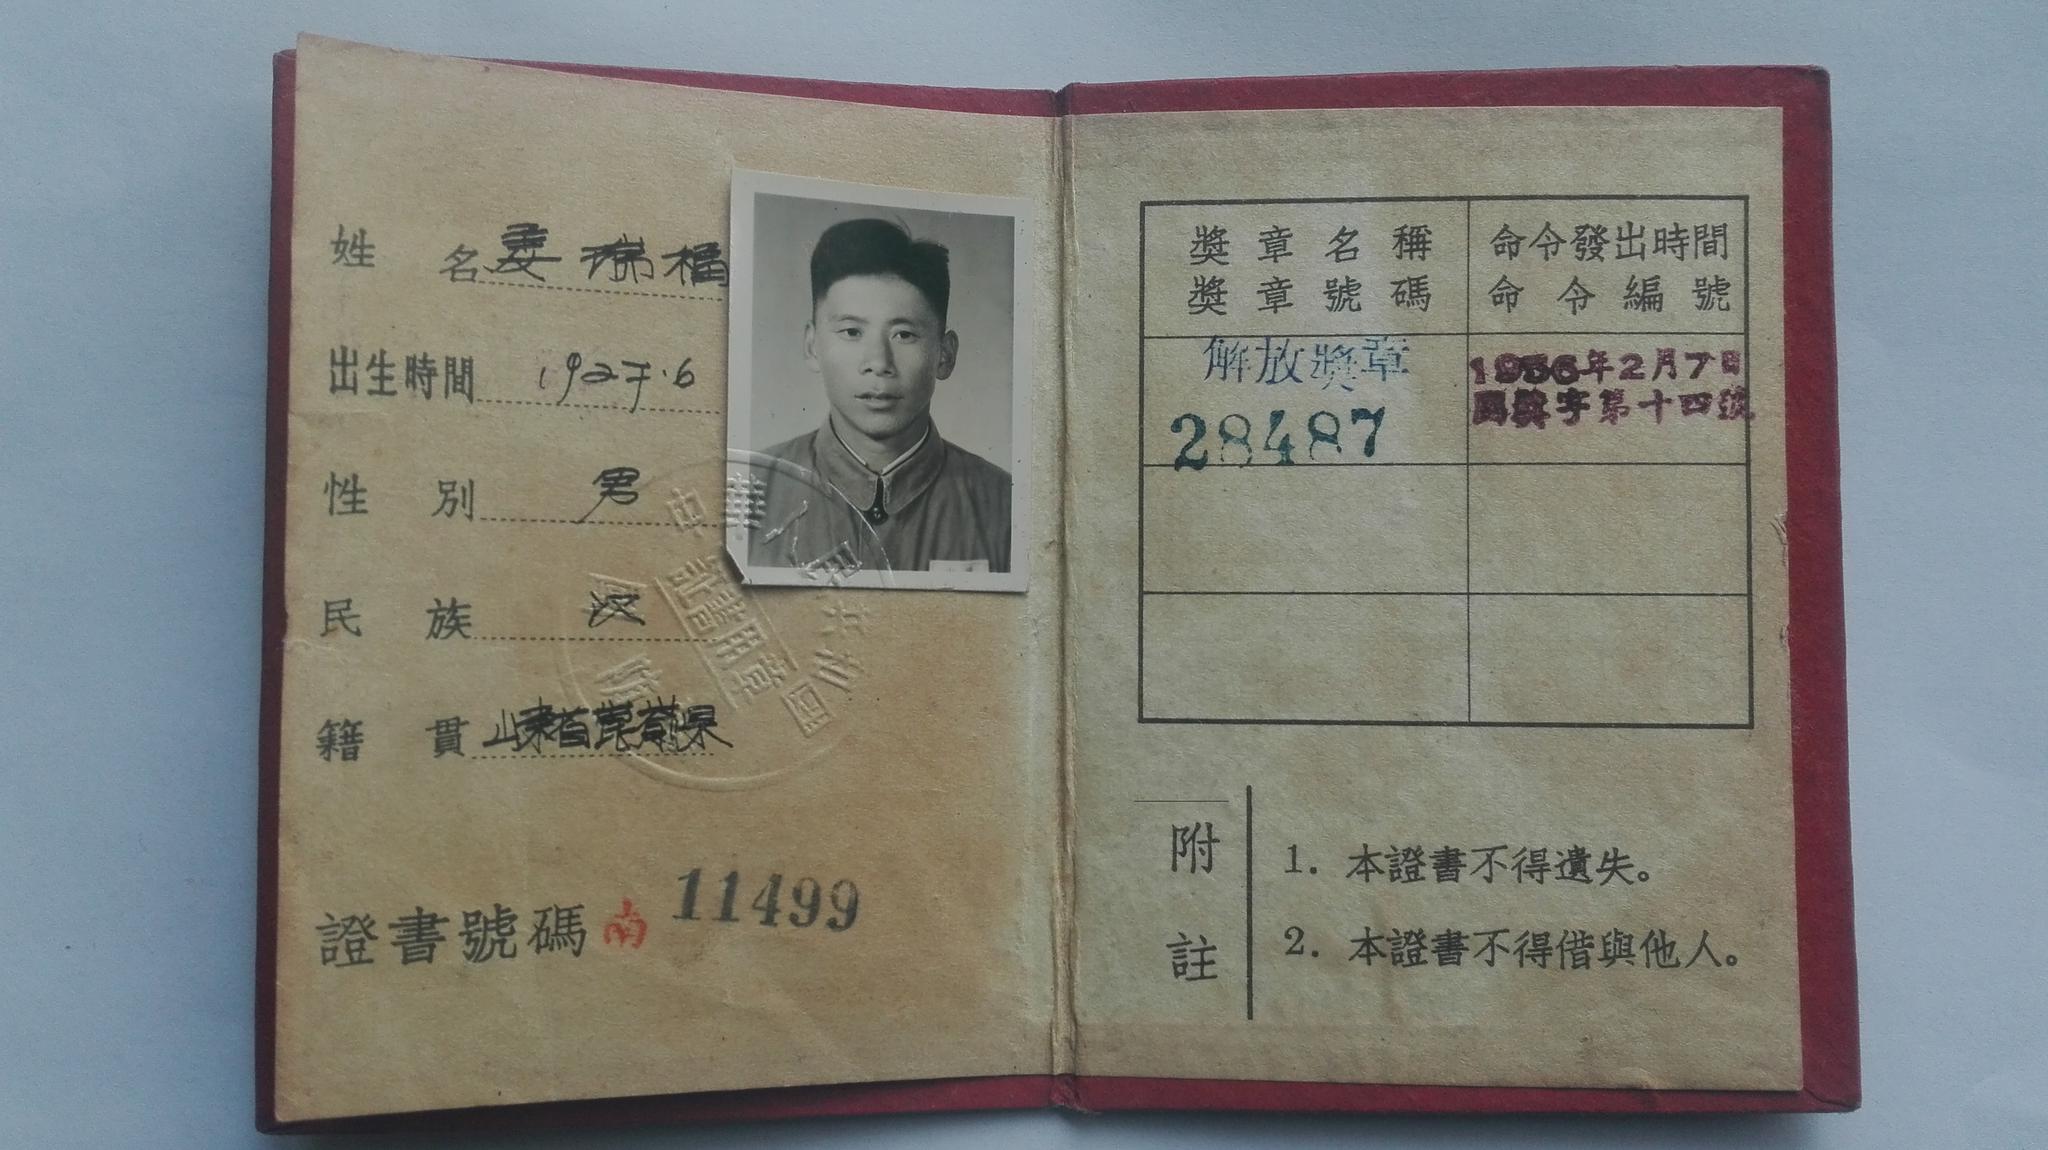 姓名 姜瑞福
出生時間 1927.6
性別 男
民族 汉
籍貫 山東省崑嵛県
證書號碼 南 11499
中華人民共和國
證書用章
獎章名稱
獎章號碼
命令發出時間
命令編號
解放獎章
28487
1956年2月7日
國獎字第十四號
附註
1. 本證書不得遺失。
2. 本證書不得借與他人。